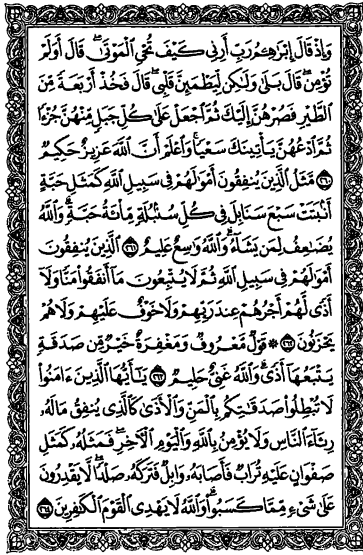 وَإِذْ قَالَ إِبْرَٰهِـۧمُ رَبِّ أَرِنِى كَيْفَ تُحْىِ ٱلْمَوْتَىٰ ۖ قَالَ أَوَلَمْ
تُؤْمِن ۖ قَالَ بَلَىٰ وَلَٰكِن لِّيَطْمَئِنَّ قَلْبِى ۖ قَالَ فَخُذْ أَرْبَعَةً مِّنَ
ٱلطَّيْرِ فَصُرْهُنَّ إِلَيْكَ ثُمَّ ٱجْعَلْ عَلَىٰ كُلِّ جَبَلٍ مِّنْهُنَّ جُزْءًا
ثُمَّ ٱدْعُهُنَّ يَأْتِينَكَ سَعْيًا ۚ وَٱعْلَمْ أَنَّ ٱللَّهَ عَزِيزٌ حَكِيمٌ
٢٦٠ مَّثَلُ ٱلَّذِينَ يُنفِقُونَ أَمْوَٰلَهُمْ فِى سَبِيلِ ٱللَّهِ كَمَثَلِ حَبَّةٍ
أَنۢبَتَتْ سَبْعَ سَنَابِلَ فِى كُلِّ سُنۢبُلَةٍ مِّا۟ئَةُ حَبَّةٍ ۗ وَٱللَّهُ
يُضَٰعِفُ لِمَن يَشَآءُ ۗ وَٱللَّهُ وَٰسِعٌ عَلِيمٌ ٢٦١ ٱلَّذِينَ يُنفِقُونَ
أَمْوَٰلَهُمْ فِى سَبِيلِ ٱللَّهِ ثُمَّ لَا يُتْبِعُونَ مَآ أَنفَقُوا۟ مَنًّا وَلَآ
أَذًى ۙ لَّهُمْ أَجْرُهُمْ عِندَ رَبِّهِمْ وَلَا خَوْفٌ عَلَيْهِمْ وَلَا هُمْ
يَحْزَنُونَ ٢٦٢ ۞ قَوْلٌ مَّعْرُوفٌ وَمَغْفِرَةٌ خَيْرٌ مِّن صَدَقَةٍ
يَتْبَعُهَآ أَذًى ۗ وَٱللَّهُ غَنِىٌّ حَلِيمٌ ٢٦٣ يَٰٓأَيُّهَا ٱلَّذِينَ ءَامَنُوا۟
لَا تُبْطِلُوا۟ صَدَقَٰتِكُم بِٱلْمَنِّ وَٱلْأَذَىٰ كَٱلَّذِى يُنفِقُ مَالَهُۥ
رِئَآءَ ٱلنَّاسِ وَلَا يُؤْمِنُ بِٱللَّهِ وَٱلْيَوْمِ ٱلْـَٔاخِرِ ۖ فَمَثَلُهُۥ كَمَثَلِ
صَفْوَانٍ عَلَيْهِ تُرَابٌ فَأَصَابَهُۥ وَابِلٌ فَتَرَكَهُۥ صَلْدًا ۖ لَّا يَقْدِرُونَ
عَلَىٰ شَىْءٍ مِّمَّا كَسَبُوا۟ ۗ وَٱللَّهُ لَا يَهْدِى ٱلْقَوْمَ ٱلْكَٰفِرِينَ ٢٦٤